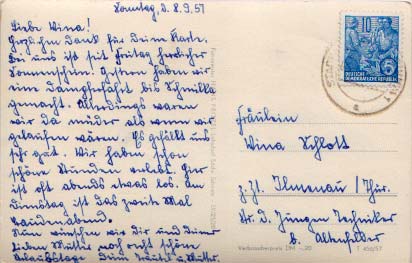 Sonntag, d. 8.9.57
Liebe Wina!
Herzlichen Dank für Deine Karte.
Bei uns ist seit Freitag herrlicher
Sonnenschein. Gestern haben wir
eine Dampffahrt bis Schmilka
gemacht. Allerdings waren
wir da müder als wenn wir
gelaufen wären. Es gefällt uns
sehr gut. Wir haben schon
schöne Stunden verlebt. Hier
ist oft abends etwas los. Am
Dienstag ist das zweite Mal
Nun wünschen wir dir und deiner
lieben Mutter noch recht schöne
Urlaubstage Deine Mutter
10
DEUTSCHE
DEMOKRATISCHE REPUBLIK
5
Fräulein
Wina Schlott
z. Zt. Ilmenau / Thür.
Str. d. Jungen Techniker
b. Altenfelder
Verbraucherpreis DM -,20
T 456/57